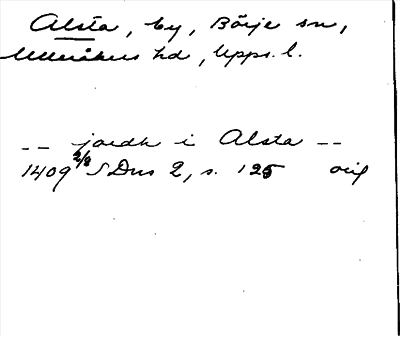 Alsta, by, Börje sn,
Ulleråkers hd, Upps. l.
-- jordh i Alsta --
1409 2/8 SDns 2, s. 125 orig